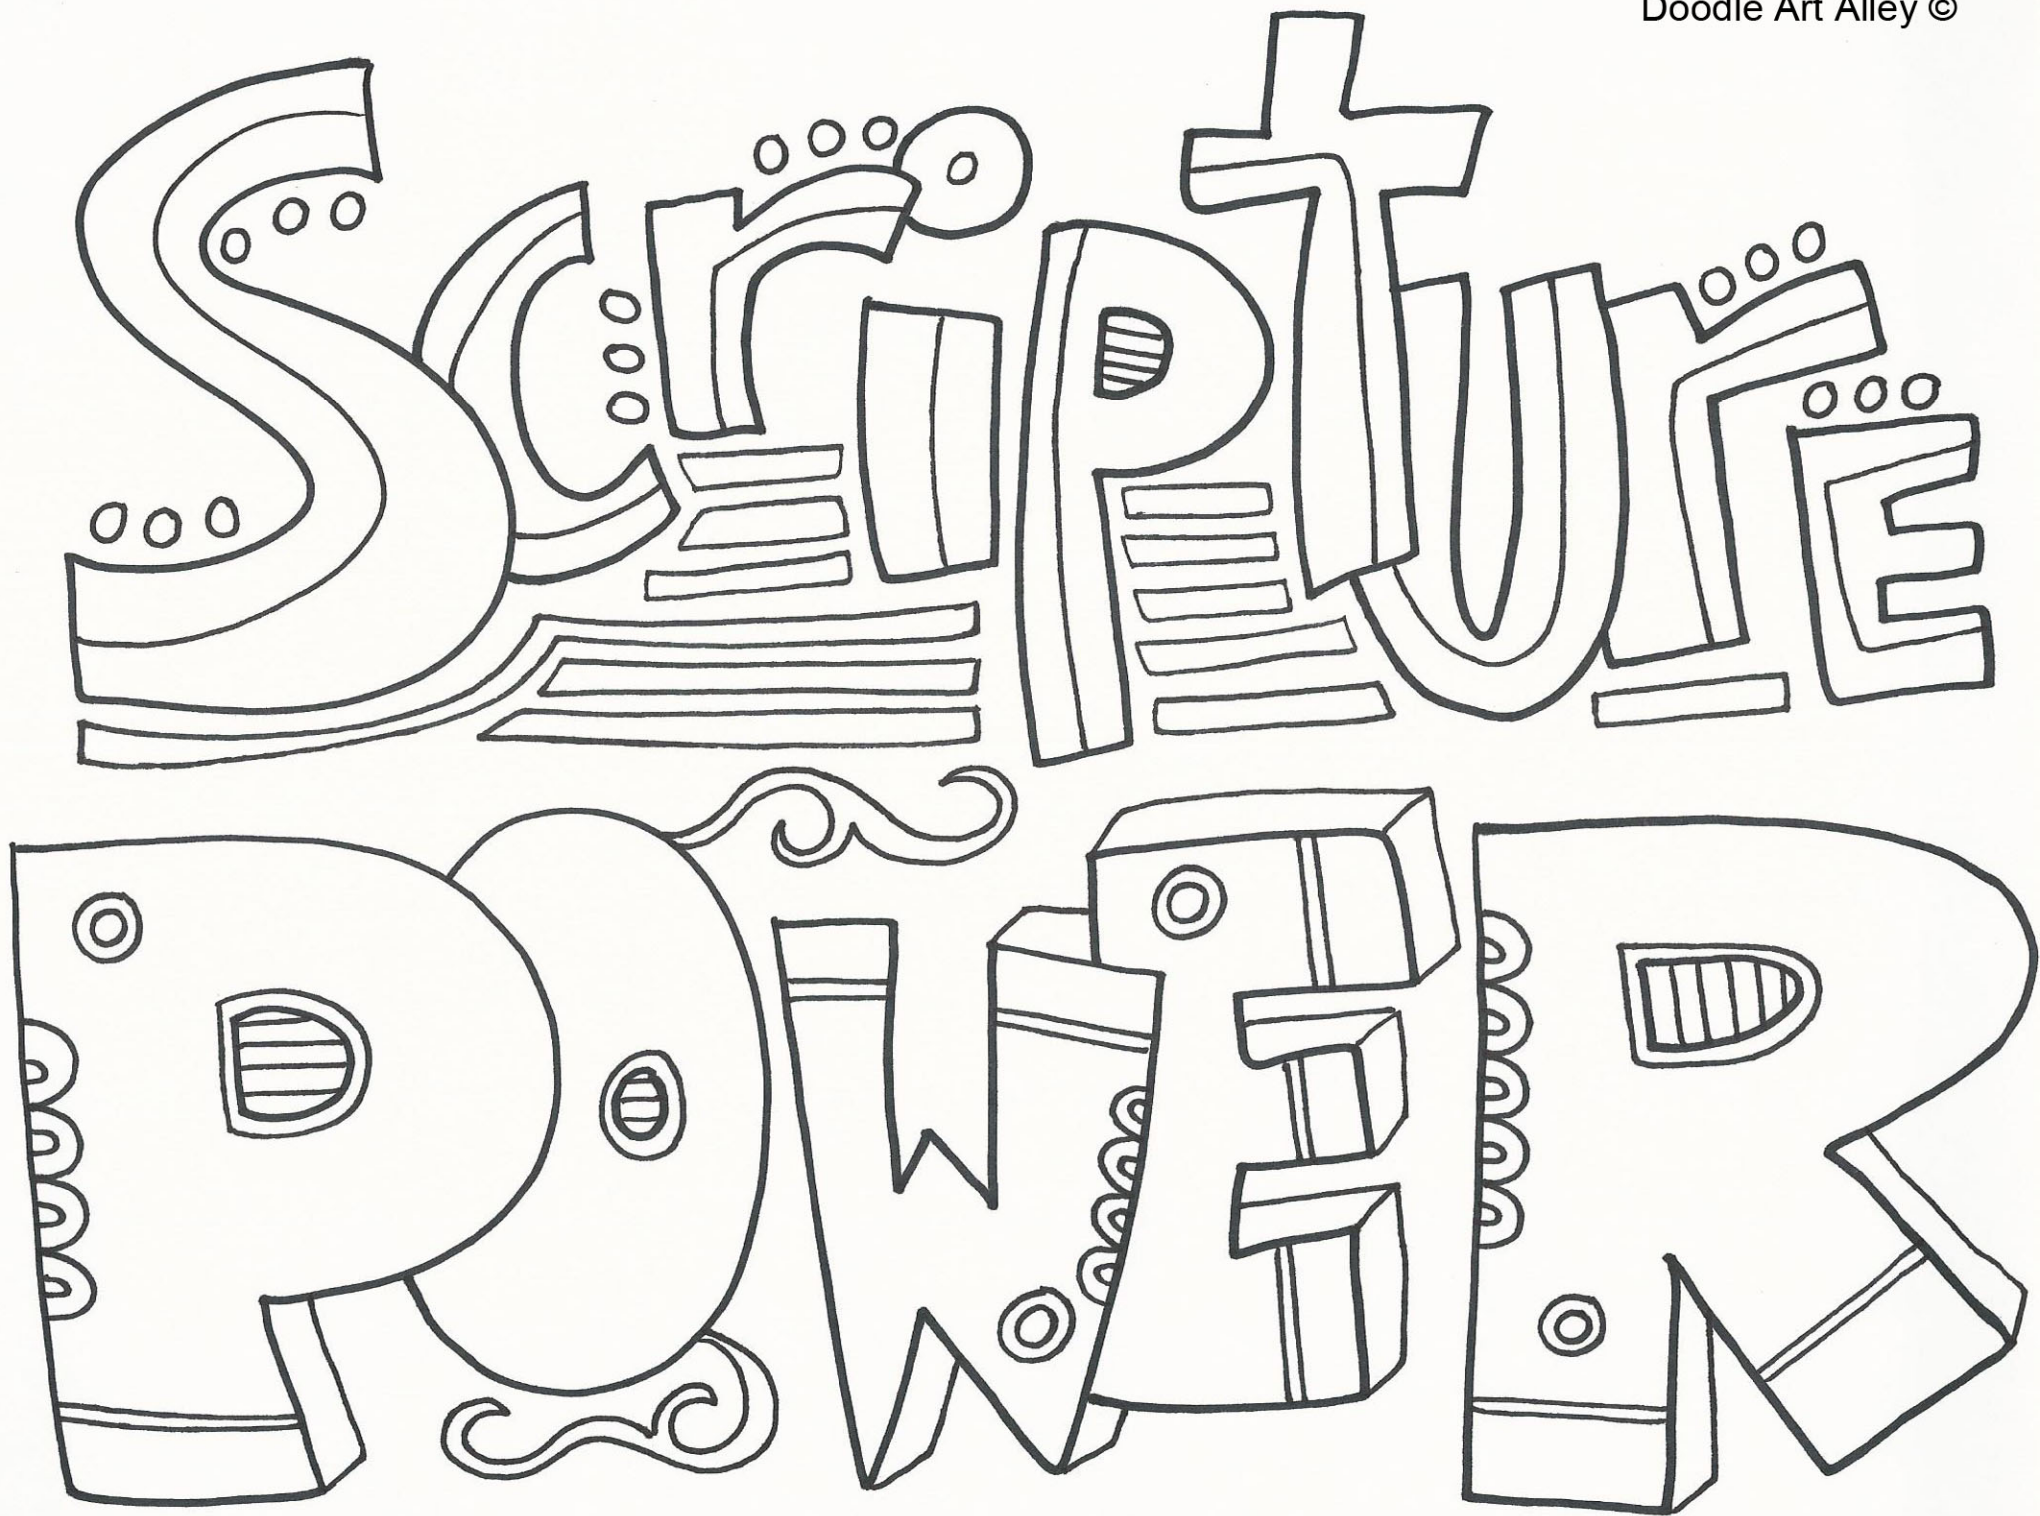 Doodle Art Alley ©
Scripture
POWER